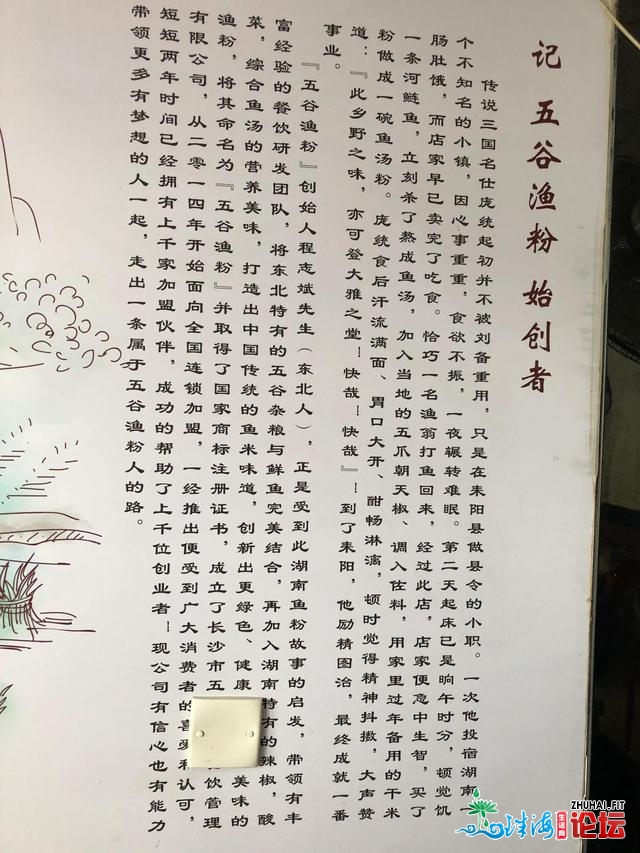 记 五谷渔粉 始创者
传说三国名仕庞统起初并不被刘备重用，只是在耒阳县做县令的小职。一次他投宿湖南一
个不知名的小镇，因心事重重，食欲不振，一夜辗转难眠。第二天起床已是晌午时分，顿觉饥
肠肚饿，而店家早已卖完了吃食。恰巧一名渔翁打鱼回来，经过此店，店家便急中生智，买了
一条河鲢鱼，立刻杀了熬成鱼汤，加入当地的五爪朝天椒、调入佐料，用家里过年备用的干米
粉做成一碗鱼汤粉。庞统食后汗流满面、胃口大开、酣畅淋漓，顿时觉得精神抖擞，大声赞
道：『此乡野之味，亦可登大雅之堂！快哉！快哉』！到了耒阳，他励精图治，最终成就一番
事业。
『五谷渔粉』创始人程志斌先生（东北人），正是受到此湖南鱼粉故事的启发，带领有丰
富经验的餐饮研发团队，将东北特有的五谷杂粮与鲜鱼完美结合，再加入湖南特有的辣椒，酸
菜，综合鱼汤的营养美味，打造出中国传统的鱼米味道，创新出更绿色、健康 美味的
渔粉，将其命名为『五谷渔粉』并取得了国家商标注册证书，成立了长沙市五 饮管理
有限公司，从二零一四年开始面向全国连锁加盟，一经推出便受到广大消费者的喜爱和认可，
短短两年时间已经拥有上千家加盟伙伴，成功的帮助了上千位创业者！现公司有信心也有能力
带领更多有梦想的人一起，走出一条属于五谷渔粉人的路。
ZHUHAI.FIT
珠海生活网论坛